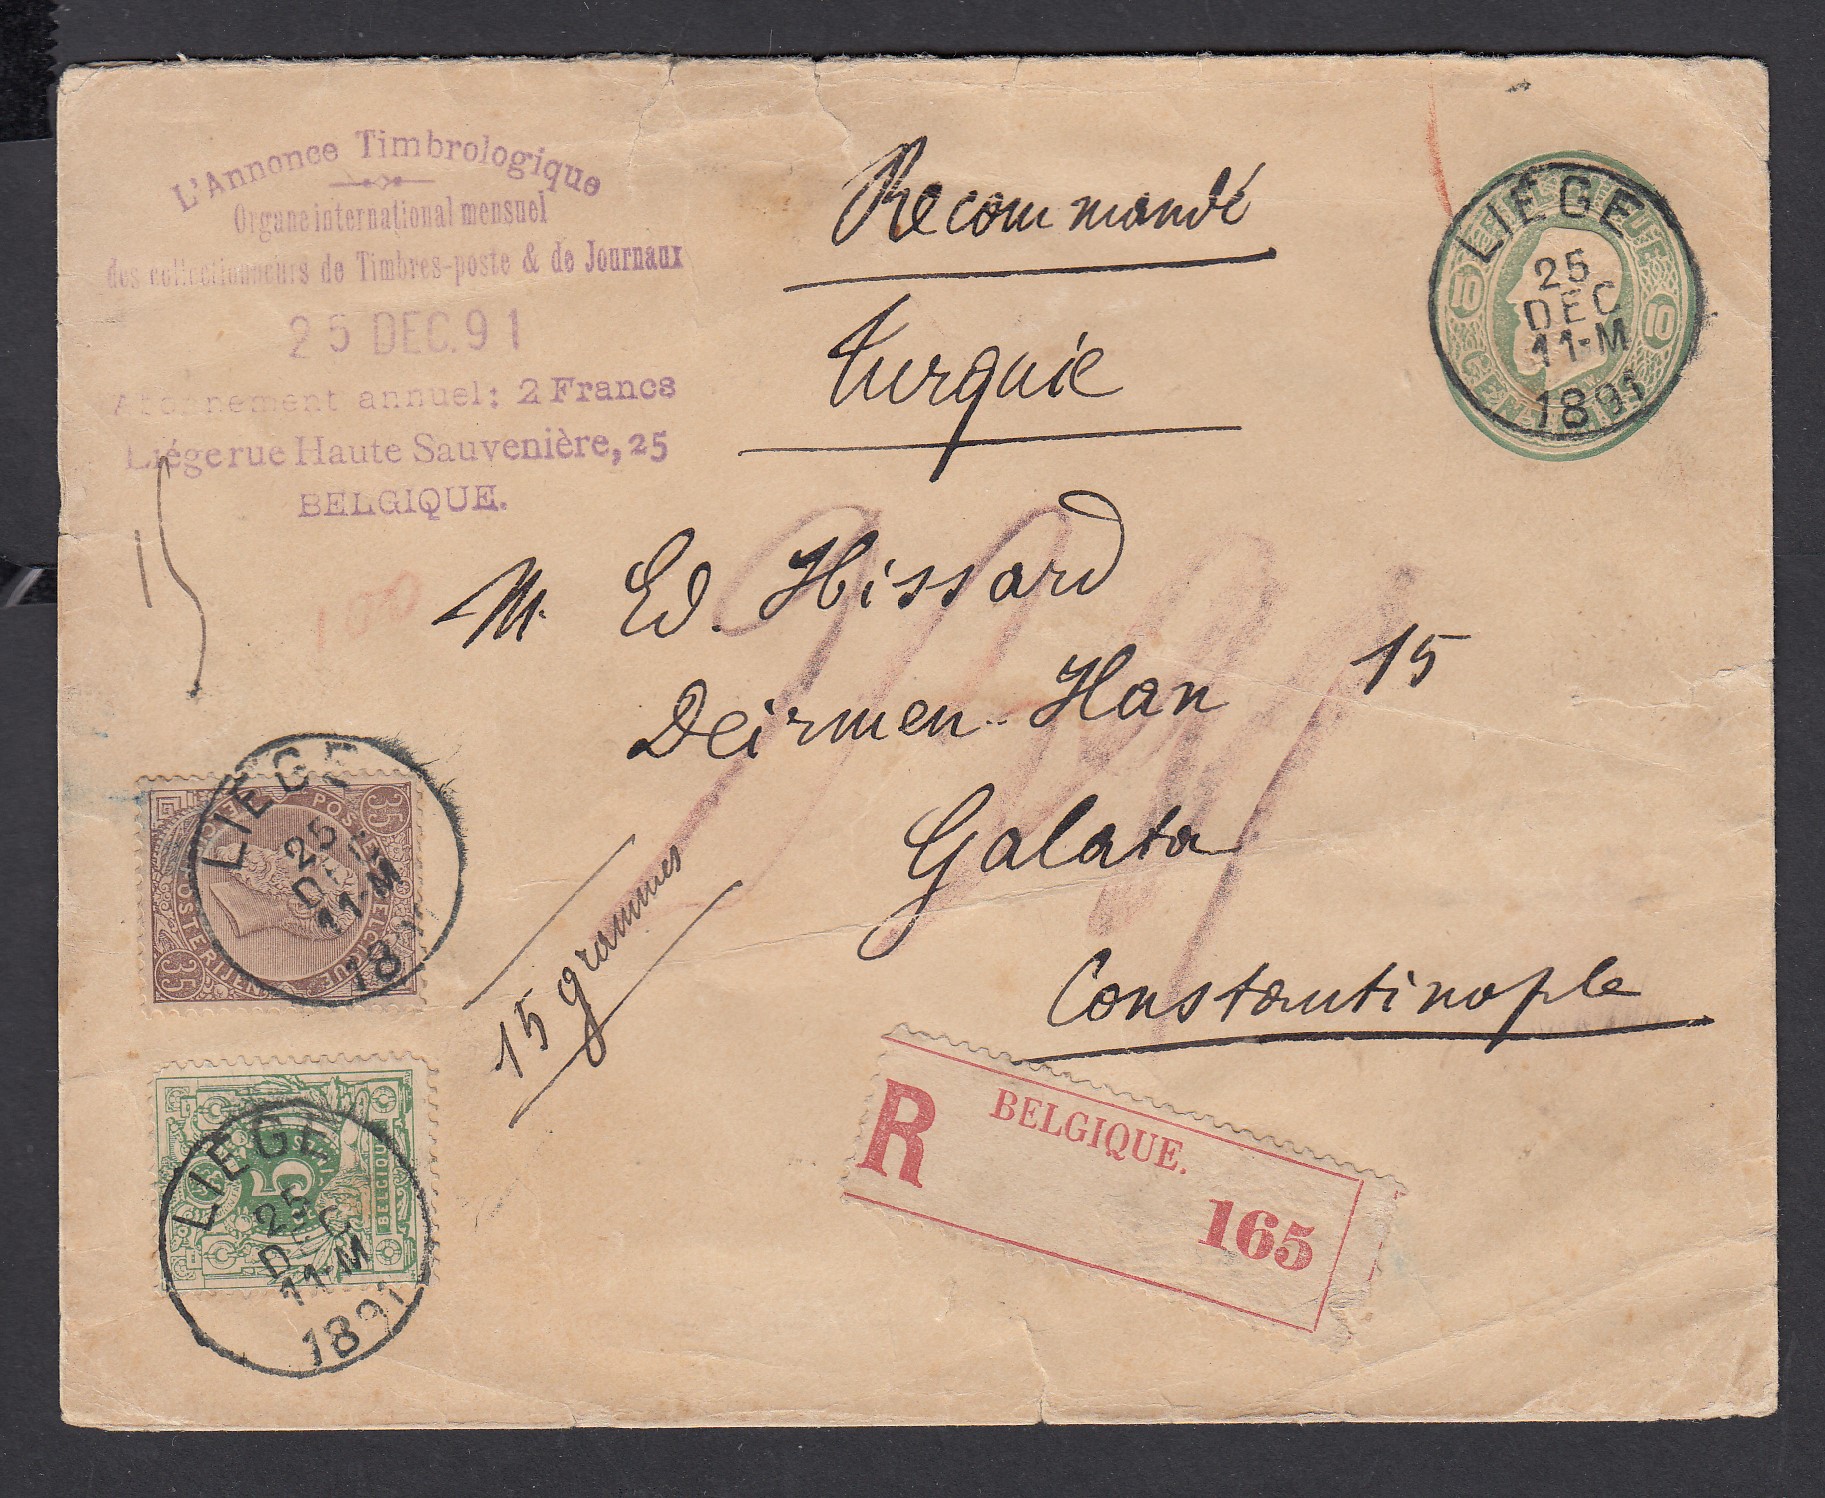 L'Annonce Timbrologique
Organe international mensuel
des collectionneurs de Timbres-poste & de Journaux
25 DEC. 91
Abonnement annuel: 2 Francs
Liége rue Haute Sauvenière, 25
BELGIQUE.
Recommandé
Turquie
LIEGE
25
DEC
11-M
1891
10
10
15
100
M. Ed. Hissard
Deirmen-Han 15
Galata
Constantinople
15 grammes
LIEGE
25
DEC
11-M
18
35
35
POSTERIJEN
LIEGE
25
DEC
11-M
1891
5
BELGIQUE
R
BELGIQUE.
165